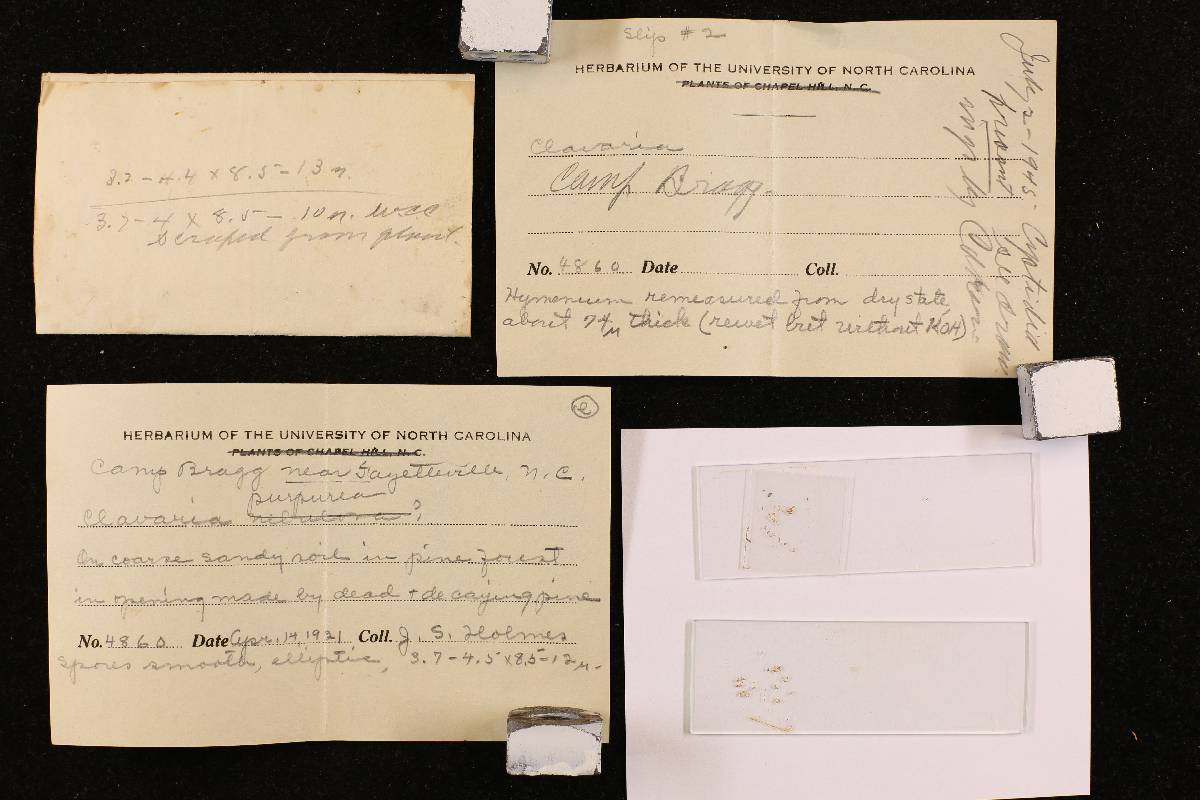 3.2 – 4.4 x 8.5 – 13 µ.
3.7 – 4 x 8.5 – 10 µ. was
scraped from plant.
Slip # 2
HERBARIUM OF THE UNIVERSITY OF NORTH CAROLINA
PLANTS OF CHAPEL HILL, N. C.
Clavaria
Camp Bragg.
No. 4860 Date Coll.
Hymenium remeasured from dry state,
about 74µ thick (rewet but without KOH)
July 2 – 1945 – Cystidia
present
(e)
HERBARIUM OF THE UNIVERSITY OF NORTH CAROLINA
PLANTS OF CHAPEL HILL, N. C.
Camp Bragg near Fayetteville, N. C.
purpurea
Clavaria nebulosa?
On coarse sandy soil in pine forest
in opening made by dead + decaying pine
No. 4860 Date Apr. 14, 1921 Coll. J. S. Holmes
Spores smooth, elliptic, 3.7 – 4.5 x 8.5 – 12 µ.